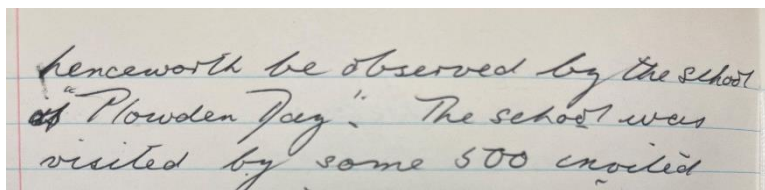 henceworth be observed by the school
as "Plowden Day". The school was
visited by some 500 invited